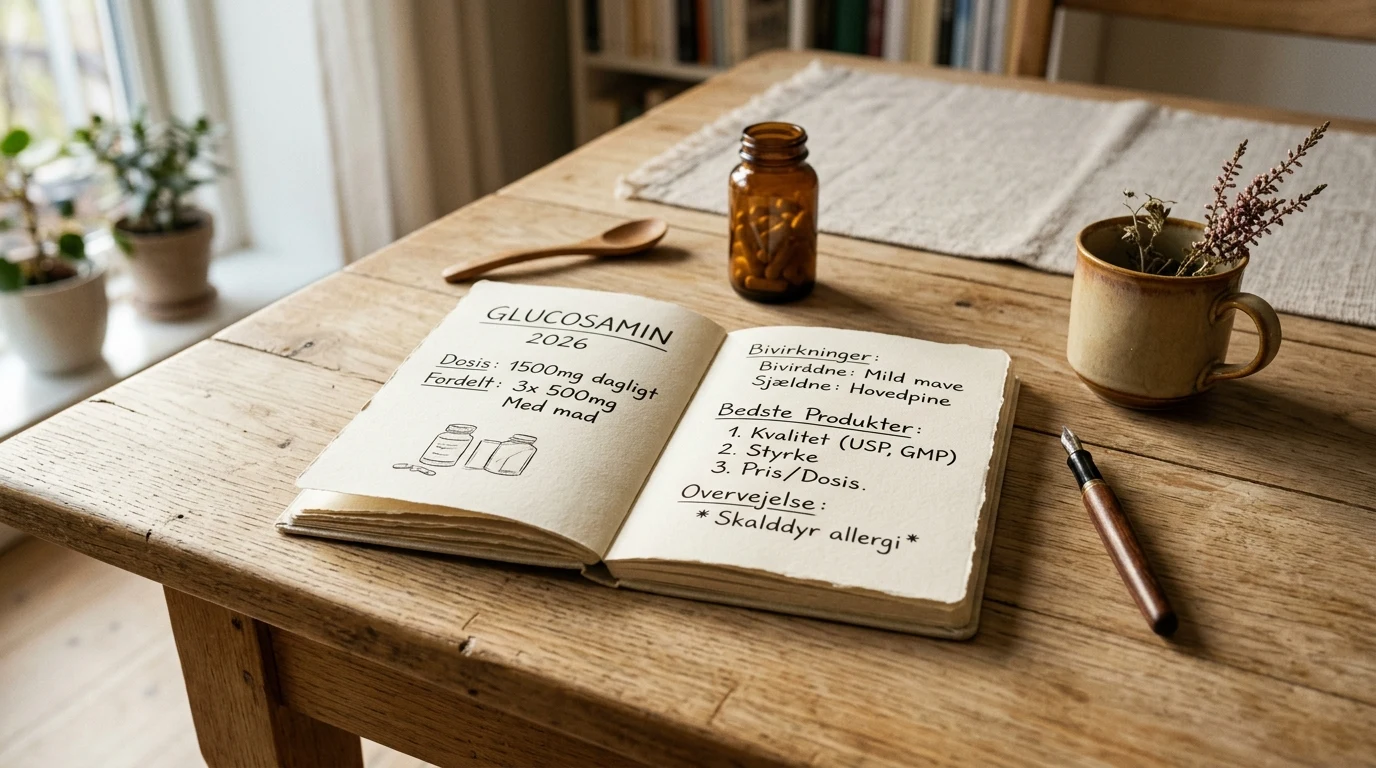 GLUCOSAMIN
2026
Dosis: 1500mg dagligt
Fordelt: 3x 500mg
Med mad
Bivirkninger:
Bivirddne: Mild mave
Sjældne: Hovedpine
Bedste Produkter:
1. Kvalitet (USP, GMP)
2. Styrke
3. Pris/Dosis.
Overvejelse:
* Skalddyr allergi *